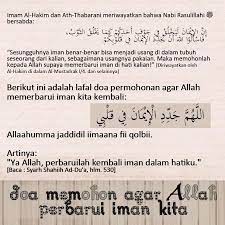 Imam Al-Hakim dan Ath-Thabarani meriwayatkan bahwa Nabi Rasulillahi ﷺ
bersabda:
إِنَّ الْإِيْمَانَ لَيَخْلَقُ فِيْ جَوْفِ أَحَدِكُمْ كَمَا يَخْلَقُ الثَّوْبُ
"Sesungguhnya iman benar-benar bisa menjadi usang di dalam tubuh
seseorang dari kalian, sebagaimana usangnya pakaian. Maka memohonlah
kepada Allah supaya memperbarui iman di hati kalian!" [Diriwayatkan oleh
Al-Hakim di dalam Al-Mustadrak I/4, dan selainnya]
Berikut ini adalah lafal doa permohonan agar Allah
memerbarui iman kita kembali:
اَللَّهُمَّ جَدِّدِ الْإِيْمَانَ فِيْ قَلْبِيْ
Allaahumma jaddidil iimaana fii qolbii.
Artinya:
"Ya Allah, perbaruilah kembali iman dalam hatiku."
[Baca : Syarh Shahiih Ad-Du'a, hlm. 530]
doa memohon agar Allah
perbarui iman kita